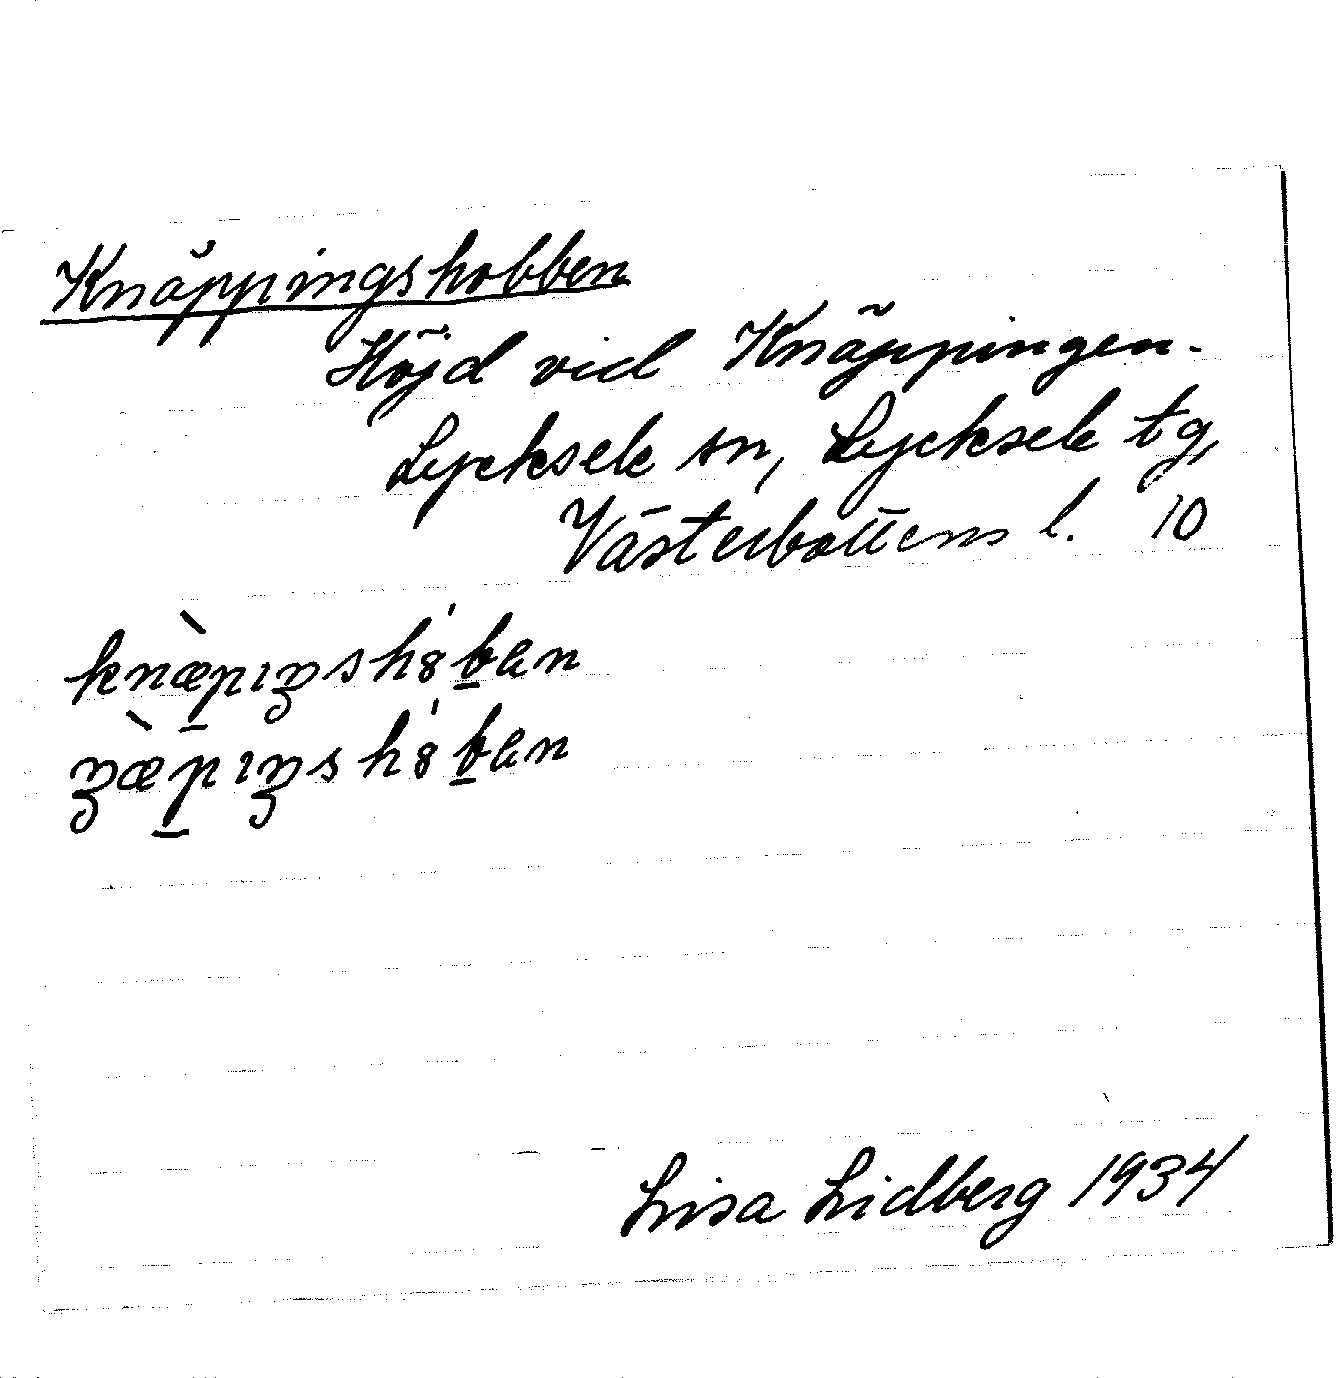 Knäppingshobben
Höjd vid Knäppingen.
Lycksele sn, Lycksele tg,
Västerbottens l. 10
knæ̀pıŋshȣ́ban
ŋæ̀pıŋshȣ́ban
Lisa Lidberg 1934